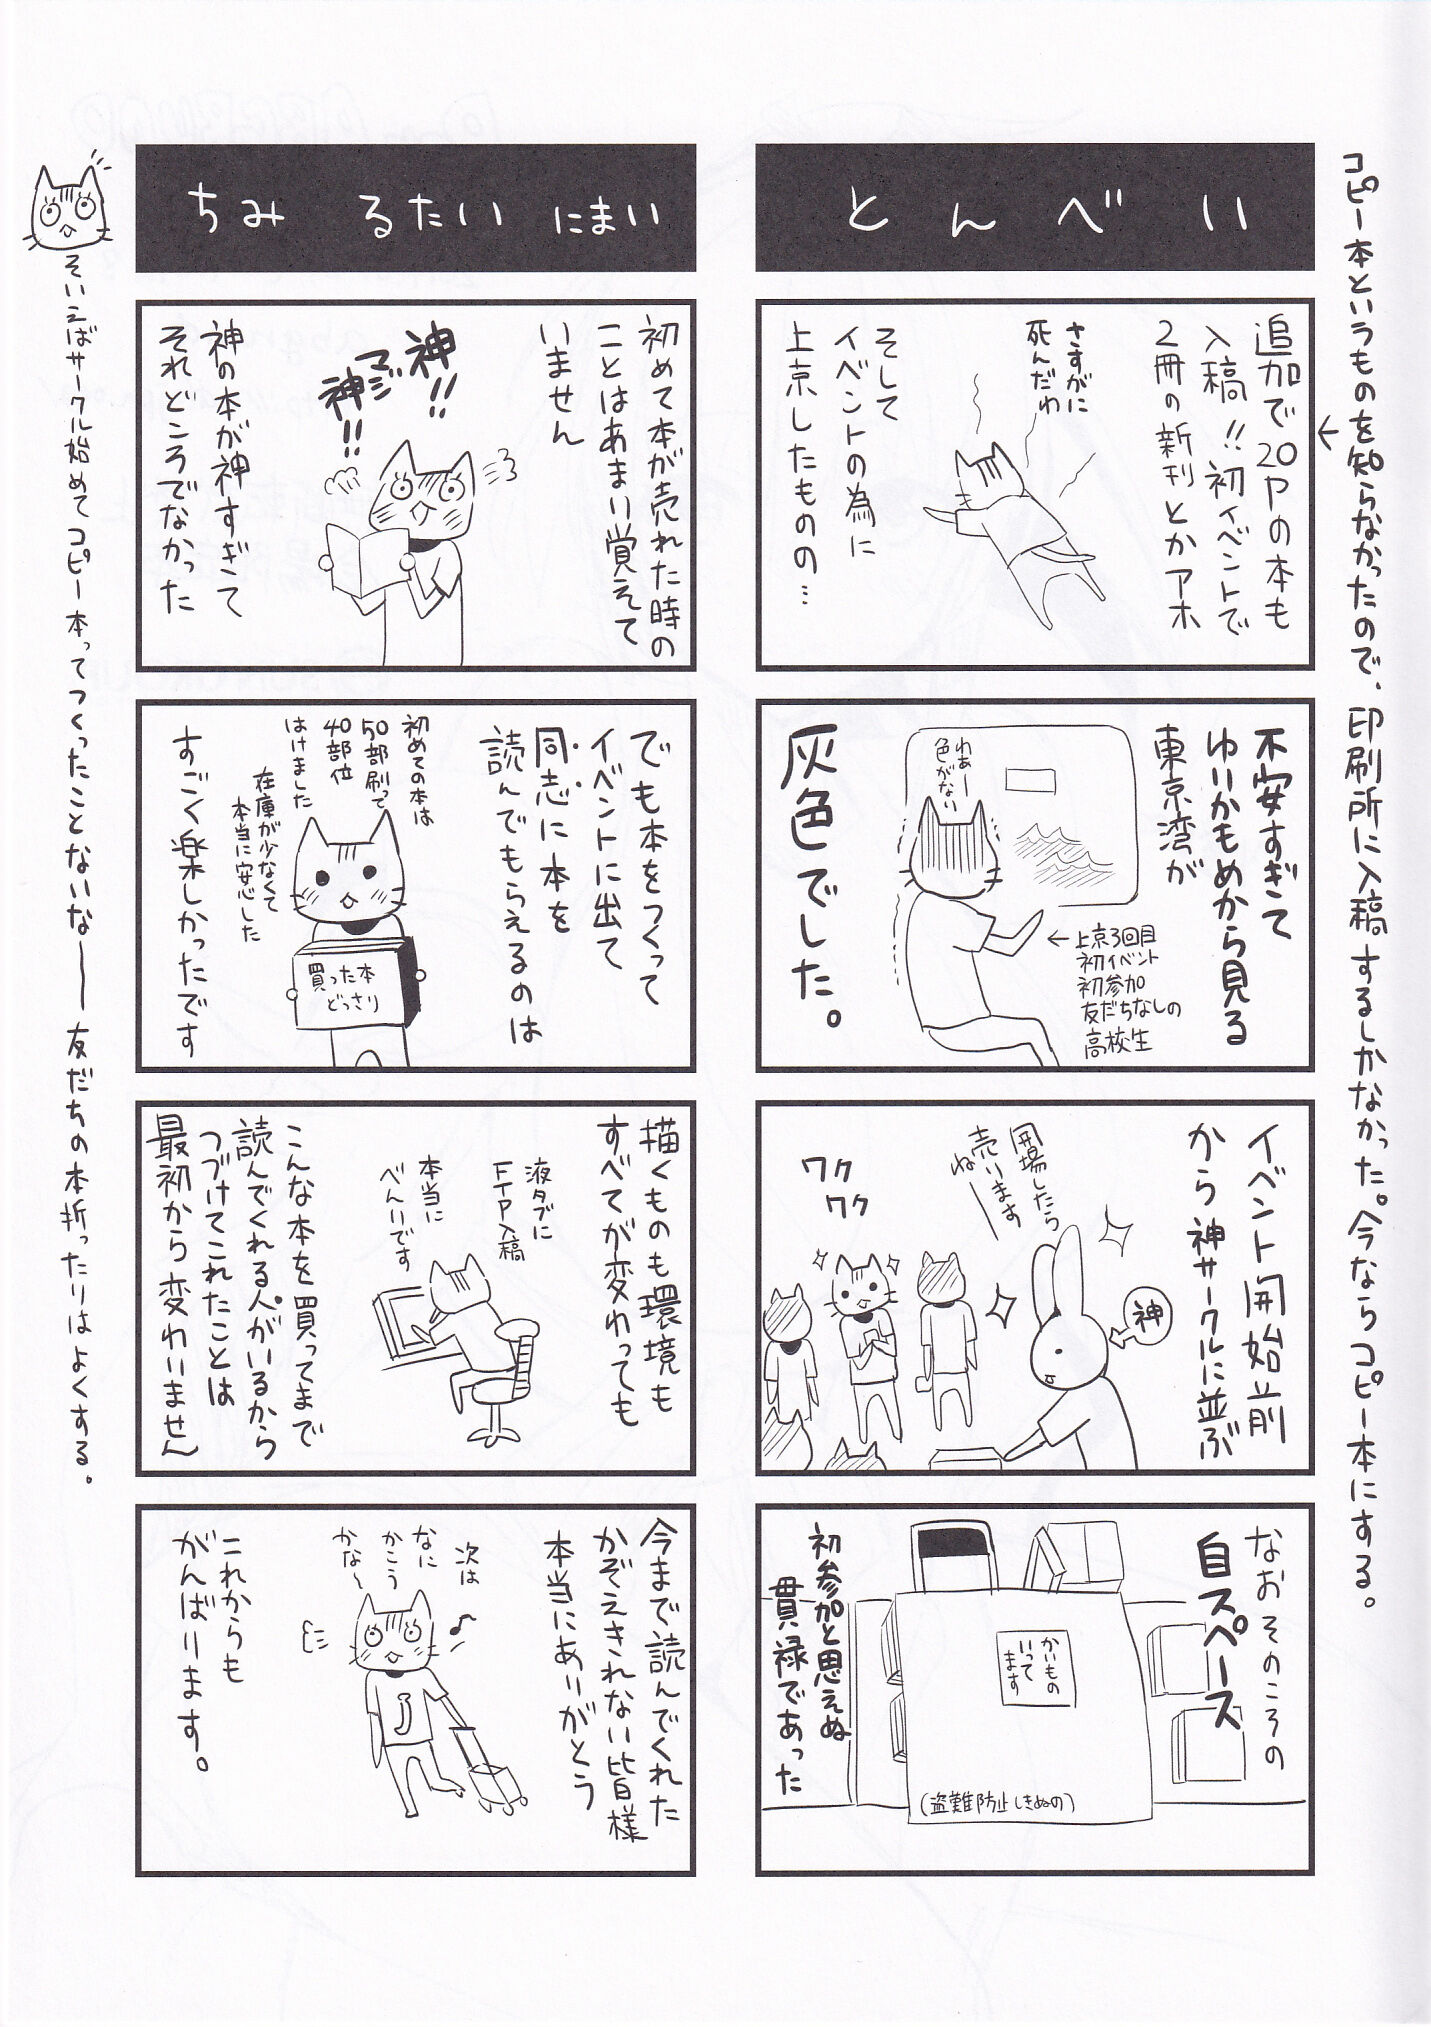 コピー本というものを知らなかったので、印刷所に入稿するしかなかった。今ならコピー本にする。
とんべい
追加で20Pの本も
入稿!!初イベントで
2冊の新刊とかアホ
さすがに
死んだわ
そして
イベントの為に
上京したものの…
不安すぎて
ゆりかもめから見る
東京湾が
わぁー
色がない
灰色でした。
←上京3回目
初イベント
初参加
友だちなしの
高校生
イベント開始前
から神サークルに並ぶ
神
開場したら
売りますね―
ワク
ワク
なおそのころの
自スペース
かいもの
いって
ます
(盗難防止しきぬの)
初参加と思えぬ
貫禄であった
ちみ るたい にまい
初めて本が売れた時の
ことはあまり覚えて
いません
神!!
マジ
神!!
神の本が神すぎて
それどころでなかった
でも本をつくって
イベントに出て
同志に本を
読んでもらえるのは
初めての本は
50部刷って
40部位
はけました
在庫が少なくて
本当に安心した
買った本
どっさり
すごく楽しかったです
描くものも環境も
すべてが変わっても
液タブに
FTP入稿
本当に
べんりです
こんな本を買ってまで
読んでくれる人がいるから
つづけてこれたことは
最初から変わりません
今まで読んでくれた
かぞえきれない皆様
本当にありがとう
次は
なに
かこう
かな〜
これからも
がんばります。
そいえばサークル始めてコピー本ってつくったことないな――友だちの本折ったりはよくする。